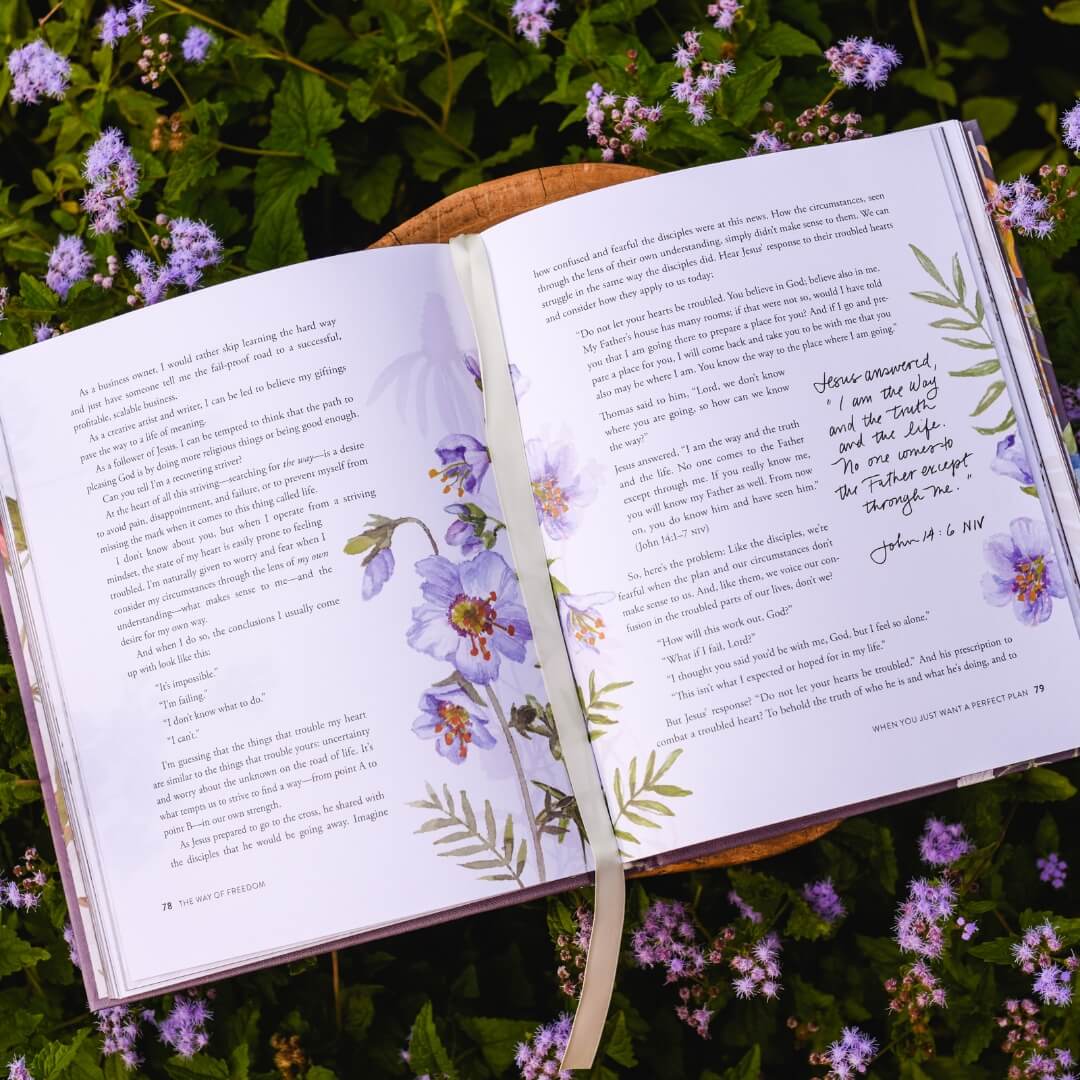 As a business owner, I would rather skip learning the hard way
and just have someone tell me the fail-proof road to a successful,
profitable, scalable business.
As a creative artist and writer, I can be led to believe my giftings
pave the way to a life of meaning.
As a follower of Jesus, I can be tempted to think that the path to
pleasing God is by doing more religious things or being good enough.
Can you tell I'm a recovering striver?
At the heart of all this striving—searching for the way—is a desire
to avoid pain, disappointment, and failure, or to prevent myself from
missing the mark when it comes to this thing called life.
I don't know about you, but when I operate from a striving
mindset, the state of my heart is easily prone to feeling
troubled. I'm naturally given to worry and fear when I
consider my circumstances through the lens of my own
understanding—what makes sense to me—and the
desire for my own way.
And when I do so, the conclusions I usually come
up with look like this:
"It's impossible."
"I'm failing."
"I don't know what to do."
"I can't."
I'm guessing that the things that trouble my heart
are similar to the things that trouble yours: uncertainty
and worry about the unknown on the road of life. It's
what tempts us to strive to find a way—from point A to
point B—in our own strength.
As Jesus prepared to go to the cross, he shared with
the disciples that he would be going away. Imagine
78 THE WAY OF FREEDOM
how confused and fearful the disciples were at this news. How the circumstances, seen
through the lens of their own understanding, simply didn't make sense to them. We can
struggle in the same way the disciples did. Hear Jesus' response to their troubled hearts
and consider how they apply to us today:
"Do not let your hearts be troubled. You believe in God; believe also in me.
My Father's house has many rooms; if that were not so, would I have told
you that I am going there to prepare a place for you? And if I go and pre-
pare a place for you, I will come back and take you to be with me that you
also may be where I am. You know the way to the place where I am going."
Thomas said to him, "Lord, we don't know
where you are going, so how can we know
the way?"
Jesus answered, "I am the way and the truth
and the life. No one comes to the Father
except through me. If you really know me,
you will know my Father as well. From now
on, you do know him and have seen him."
(John 14:1–7 NIV)
Jesus answered,
"I am the way
and the truth
and the life.
No one comes to
the Father except
through me."
John 14:6 NIV
So, here's the problem: Like the disciples, we're
fearful when the plan and our circumstances don't
make sense to us. And, like them, we voice our con-
fusion in the troubled parts of our lives, don't we?
"How will this work out, God?"
"What if I fail, Lord?"
"I thought you said you'd be with me, God, but I feel so alone."
"This isn't what I expected or hoped for in my life."
But Jesus' response? "Do not let your hearts be troubled." And his prescription to
combat a troubled heart? To behold the truth of who he is and what he's doing, and to
WHEN YOU JUST WANT A PERFECT PLAN 79